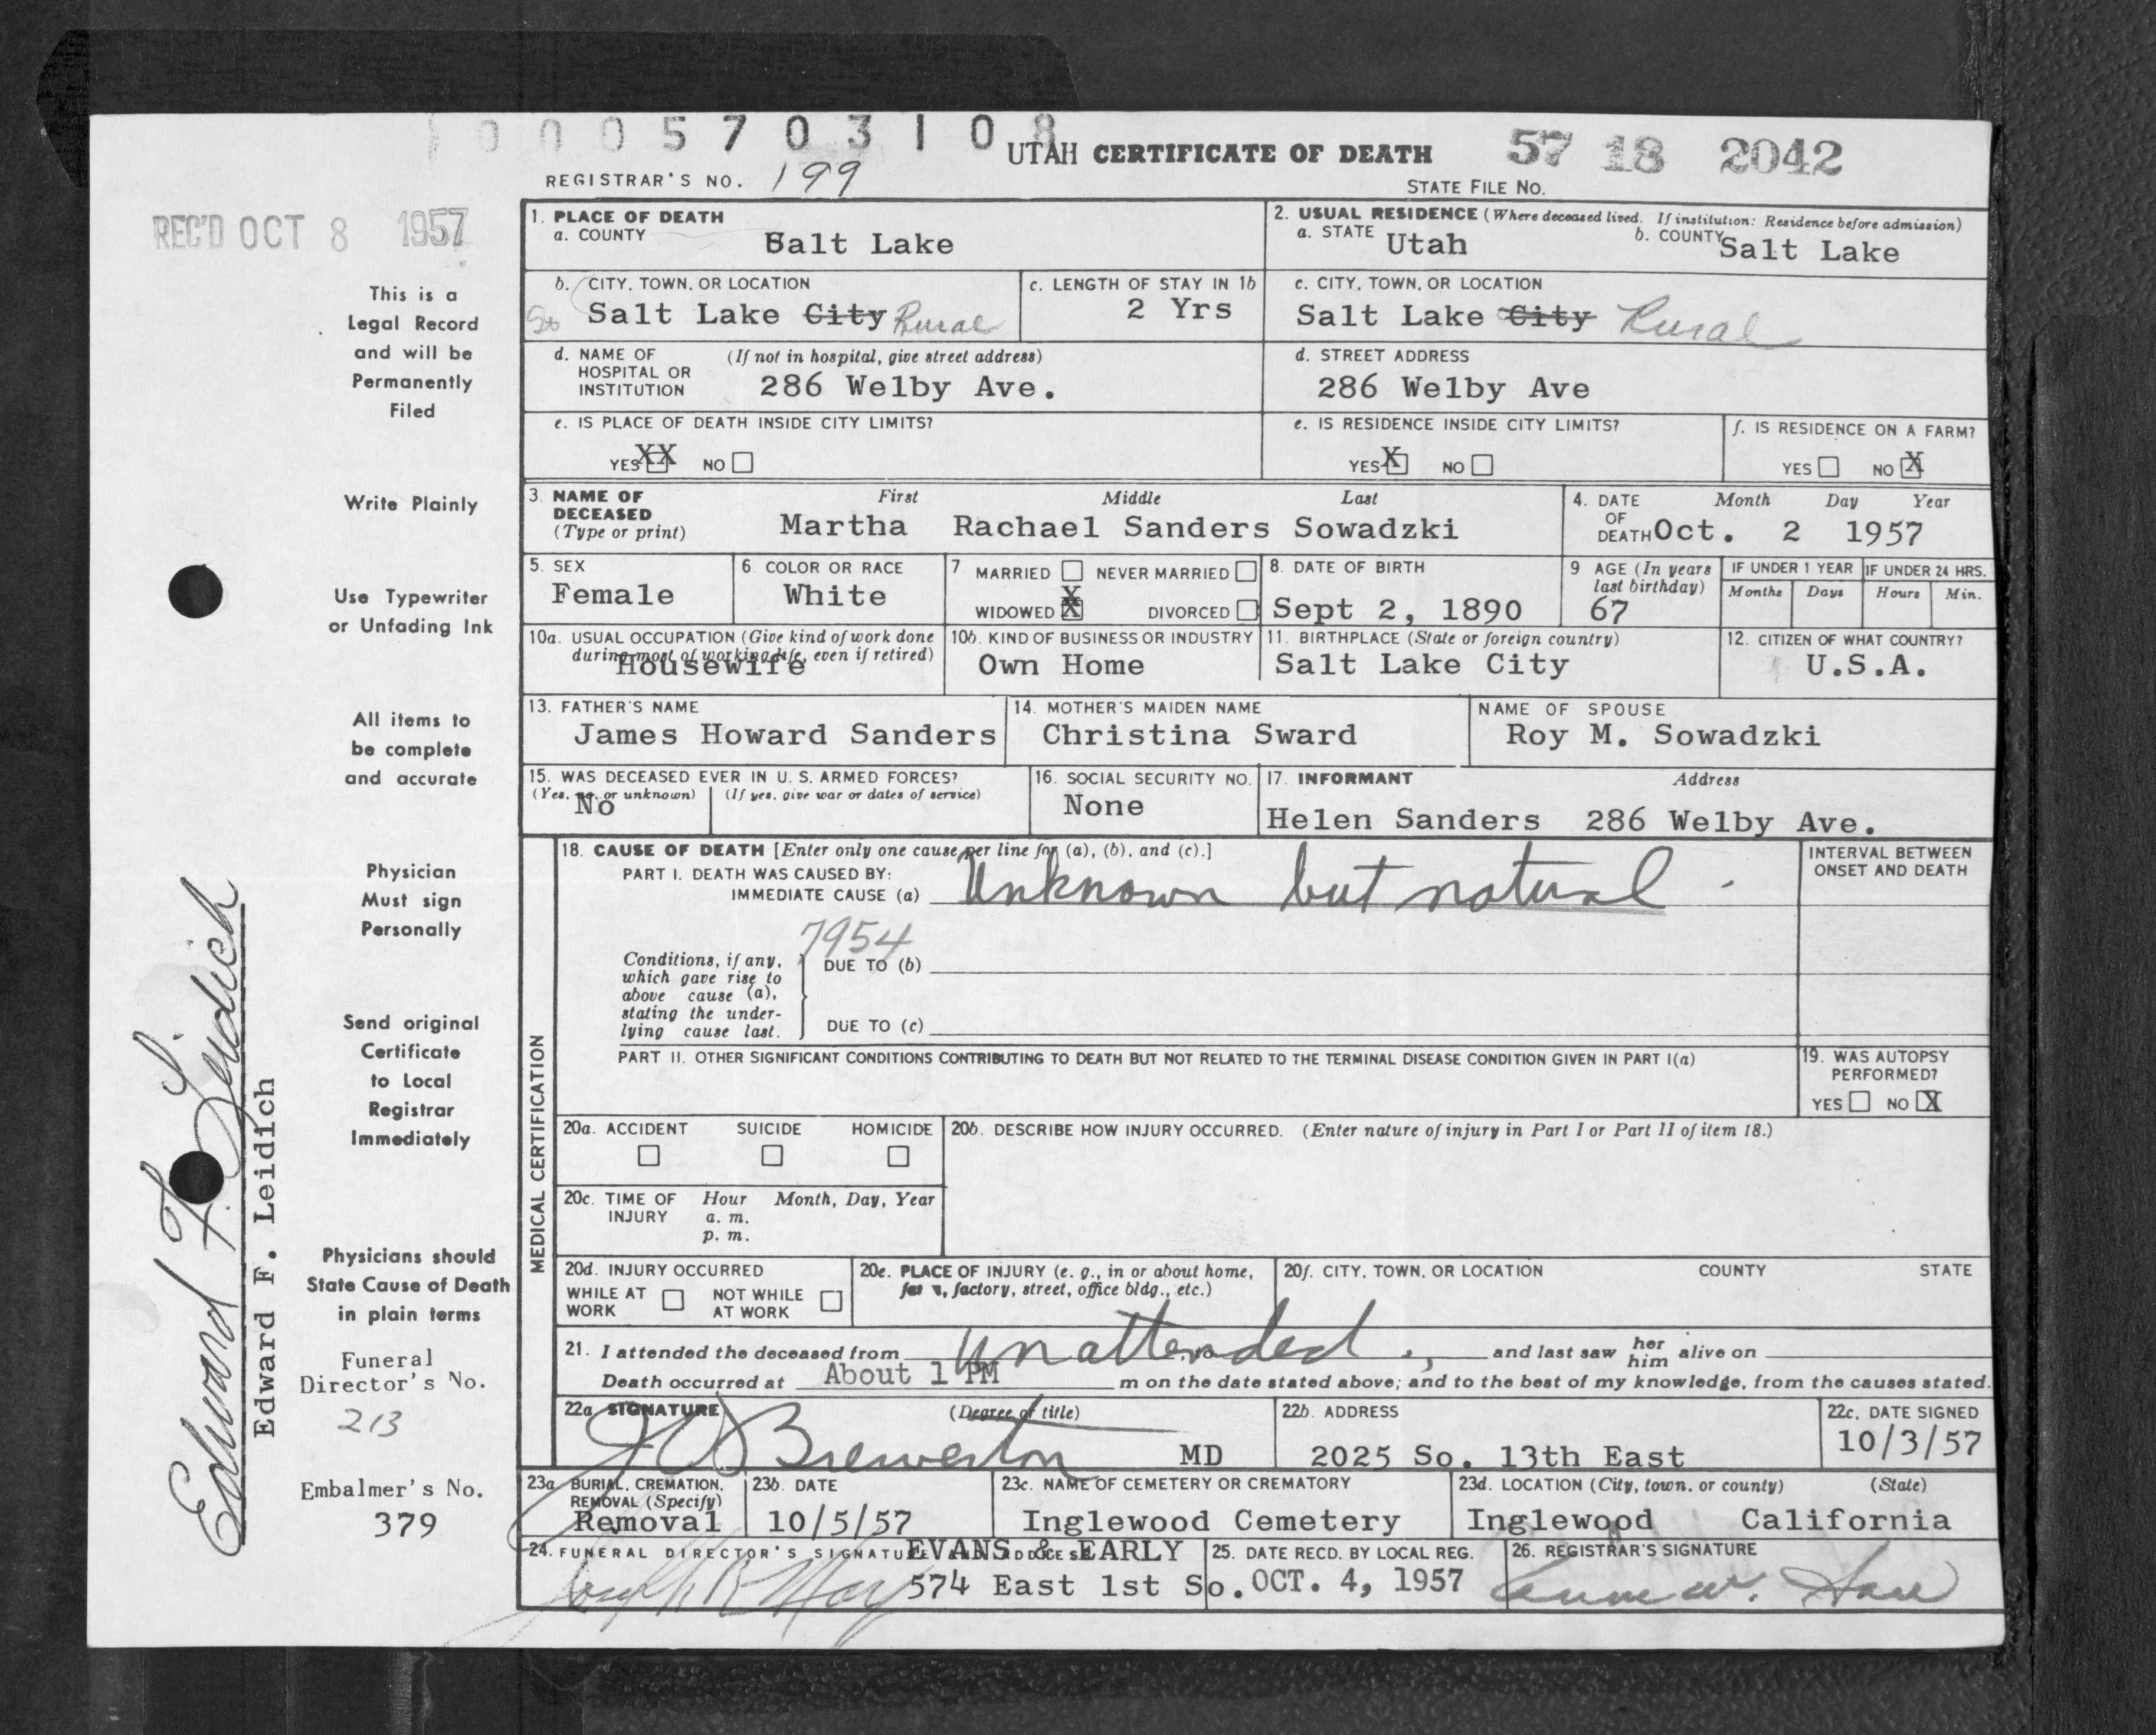 1 0 0 0 5 7 0 3 1 0 8
UTAH CERTIFICATE OF DEATH
57 18 2042
REGISTRAR'S NO. 199
STATE FILE NO.
REC'D OCT 8 1957
1. PLACE OF DEATH
a. COUNTY Salt Lake
2. USUAL RESIDENCE (Where deceased lived. If institution: Residence before admission)
a. STATE Utah b. COUNTY Salt Lake
b. CITY, TOWN, OR LOCATION
Salt Lake City Rural
c. LENGTH OF STAY IN 1b
2 Yrs
c. CITY, TOWN, OR LOCATION
Salt Lake City Rural
d. NAME OF HOSPITAL OR INSTITUTION (If not in hospital, give street address)
286 Welby Ave.
d. STREET ADDRESS
286 Welby Ave
e. IS PLACE OF DEATH INSIDE CITY LIMITS?
YES XX NO
e. IS RESIDENCE INSIDE CITY LIMITS?
YES X NO
f. IS RESIDENCE ON A FARM?
YES NO X
3. NAME OF DECEASED (Type or print)
First Middle Last
Martha Rachael Sanders Sowadzki
4. DATE OF DEATH Month Day Year
Oct. 2 1957
5. SEX
Female
6. COLOR OR RACE
White
7 MARRIED NEVER MARRIED
WIDOWED X DIVORCED
8. DATE OF BIRTH
Sept 2, 1890
9 AGE (In years last birthday)
67
IF UNDER 1 YEAR
Months Days
IF UNDER 24 HRS.
Hours Min.
10a. USUAL OCCUPATION (Give kind of work done during most of working life, even if retired)
Housewife
10b. KIND OF BUSINESS OR INDUSTRY
Own Home
11. BIRTHPLACE (State or foreign country)
Salt Lake City
12. CITIZEN OF WHAT COUNTRY?
U.S.A.
13. FATHER'S NAME
James Howard Sanders
14. MOTHER'S MAIDEN NAME
Christina Sward
NAME OF SPOUSE
Roy M. Sowadzki
15. WAS DECEASED EVER IN U. S. ARMED FORCES?
(Yes, no, or unknown) (If yes, give war or dates of service)
No
16. SOCIAL SECURITY NO.
None
17. INFORMANT Address
Helen Sanders 286 Welby Ave.
MEDICAL CERTIFICATION
18. CAUSE OF DEATH [Enter only one cause per line for (a), (b), and (c).]
PART I. DEATH WAS CAUSED BY:
IMMEDIATE CAUSE (a) Unknown but natural
INTERVAL BETWEEN ONSET AND DEATH
7954
Conditions, if any, which gave rise to above cause (a), stating the underlying cause last.
DUE TO (b)
DUE TO (c)
PART II. OTHER SIGNIFICANT CONDITIONS CONTRIBUTING TO DEATH BUT NOT RELATED TO THE TERMINAL DISEASE CONDITION GIVEN IN PART I(a)
19. WAS AUTOPSY PERFORMED?
YES NO X
20a. ACCIDENT SUICIDE HOMICIDE
20b. DESCRIBE HOW INJURY OCCURRED. (Enter nature of injury in Part I or Part II of item 18.)
20c. TIME OF INJURY Hour Month, Day, Year
a. m.
p. m.
20d. INJURY OCCURRED
WHILE AT WORK NOT WHILE AT WORK
20e. PLACE OF INJURY (e. g., in or about home, farm, factory, street, office bldg., etc.)
20f. CITY, TOWN, OR LOCATION COUNTY STATE
21. I attended the deceased from unattended, and last saw her him alive on
Death occurred at About 1 PM m on the date stated above; and to the best of my knowledge, from the causes stated.
22a. SIGNATURE (Degree or title)
Brewerton MD
22b. ADDRESS
2025 So. 13th East
22c. DATE SIGNED
10/3/57
23a. BURIAL, CREMATION, REMOVAL (Specify)
Removal
23b. DATE
10/5/57
23c. NAME OF CEMETERY OR CREMATORY
Inglewood Cemetery
23d. LOCATION (City, town, or county) (State)
Inglewood California
24. FUNERAL DIRECTOR'S SIGNATURE AND ADDRESS
EVANS & EARLY
574 East 1st So.
25. DATE RECD. BY LOCAL REG.
OCT. 4, 1957
26. REGISTRAR'S SIGNATURE
This is a
Legal Record
and will be
Permanently
Filed
Write Plainly
Use Typewriter
or Unfading Ink
All items to
be complete
and accurate
Physician
Must sign
Personally
Send original
Certificate
to Local
Registrar
Immediately
Physicians should
State Cause of Death
in plain terms
Funeral
Director's No.
213
Embalmer's No.
379
Edward F. Leidich
Edward F. Leidich